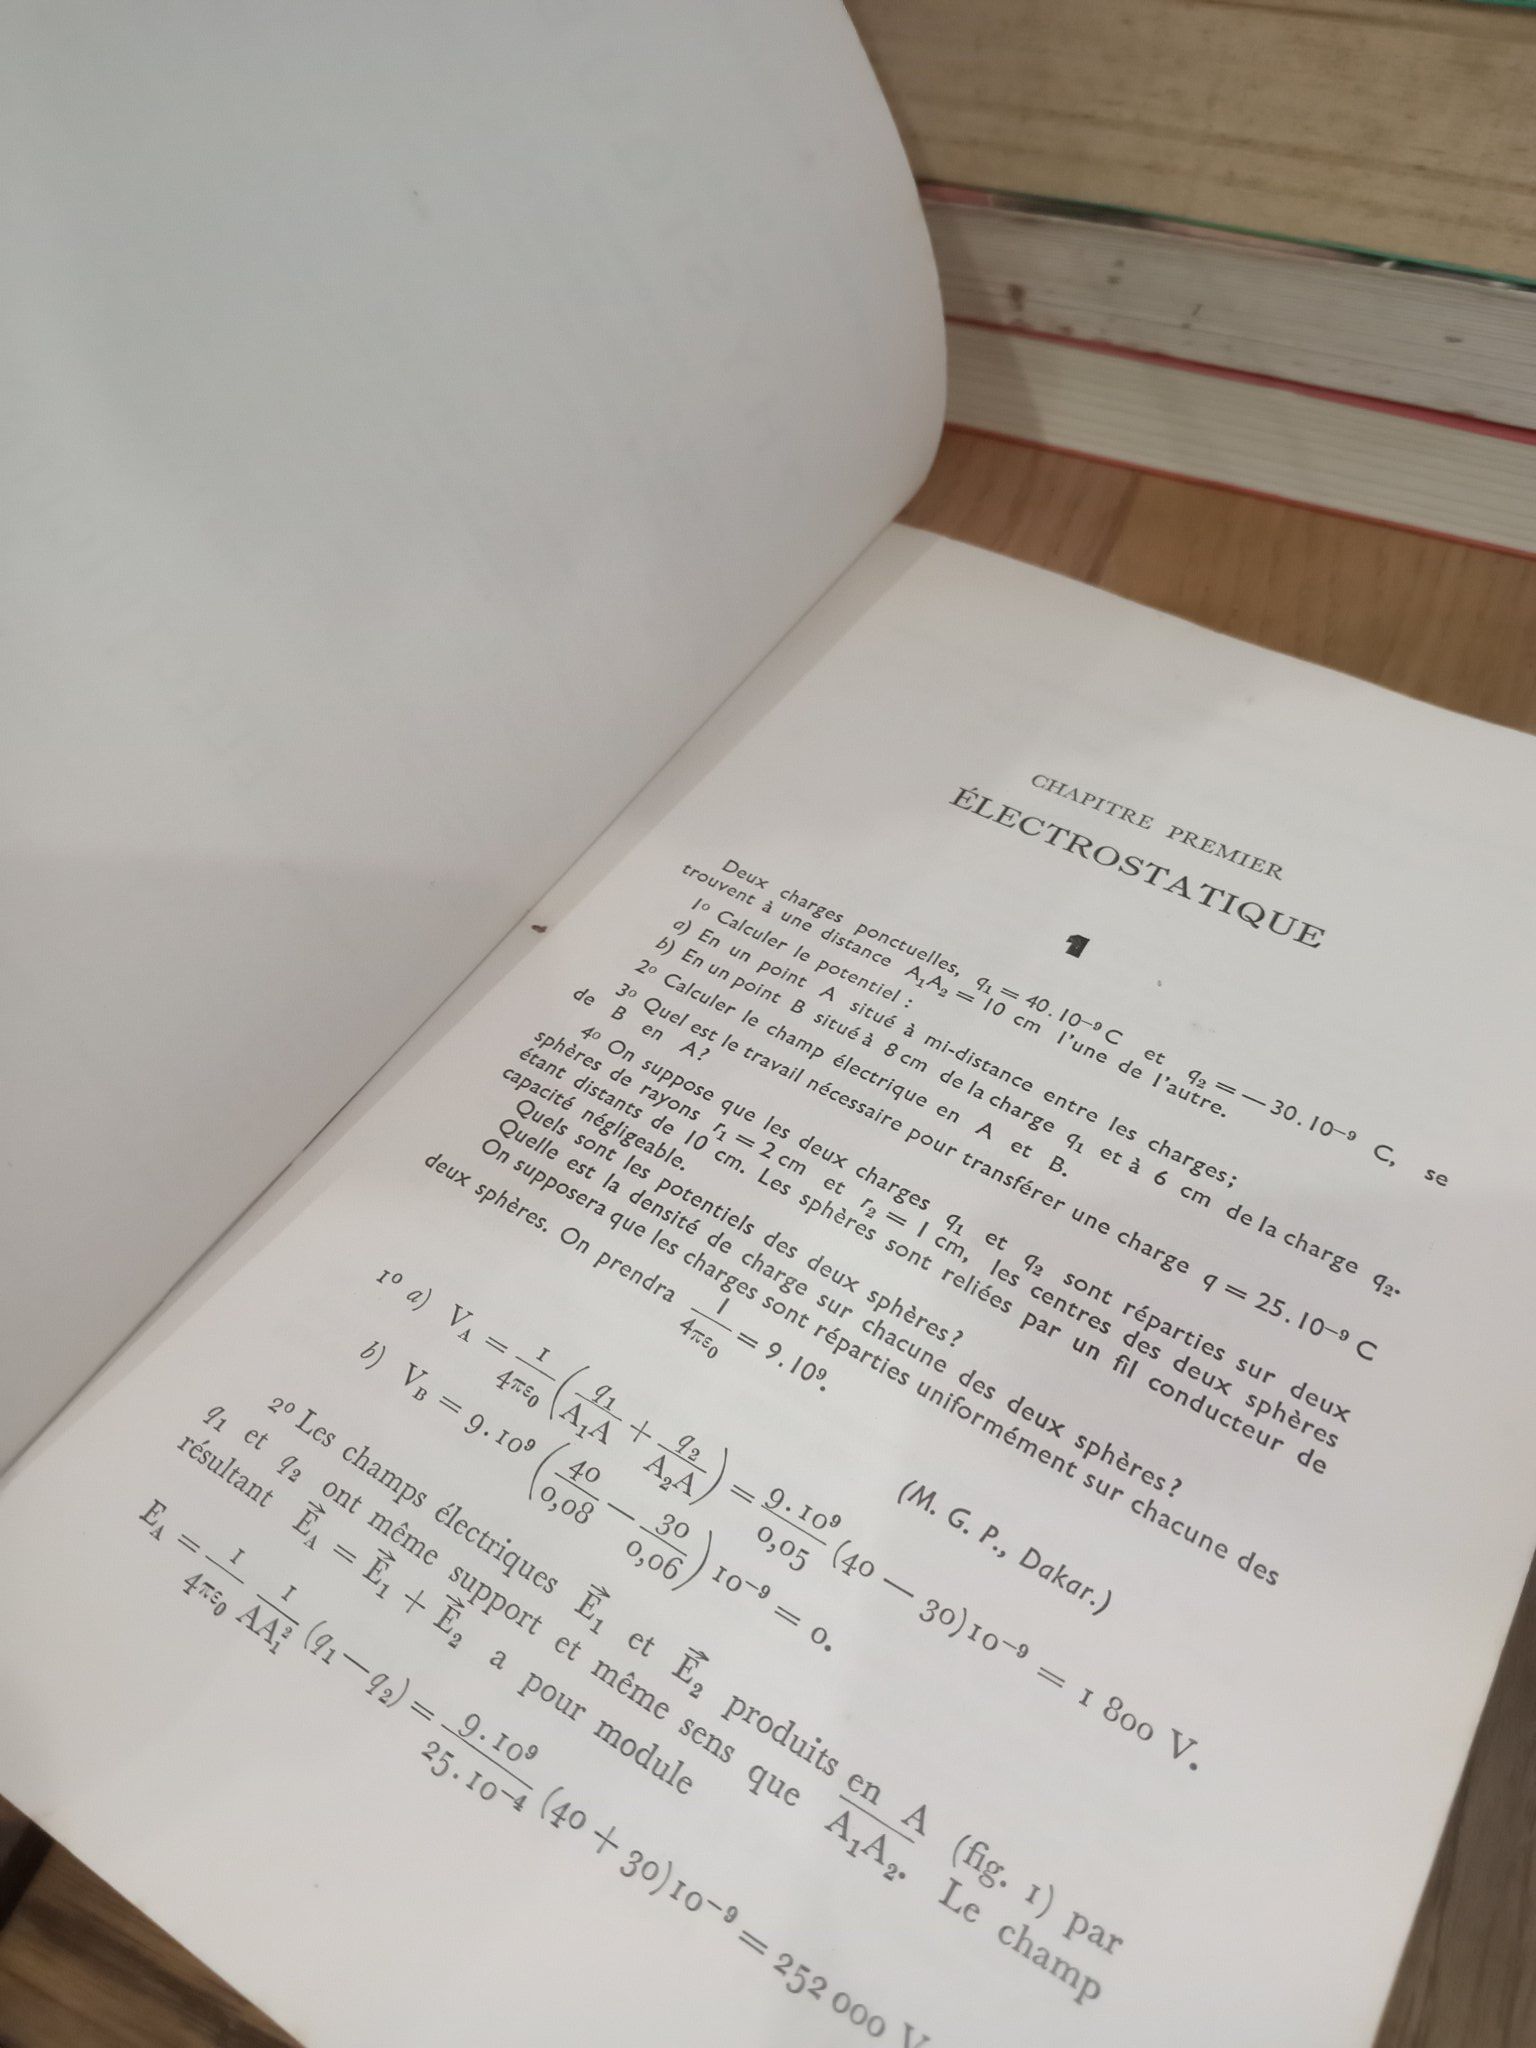 CHAPITRE PREMIER
ÉLECTROSTATIQUE
1
Deux charges ponctuelles, q₁ = 40.10⁻⁹ C et q₂ = — 30.10⁻⁹ C, se
trouvent à une distance A₁A₂ = 10 cm l'une de l'autre.
1º Calculer le potentiel :
a) En un point A situé à mi-distance entre les charges;
b) En un point B situé à 8 cm de la charge q₁ et à 6 cm de la charge q₂.
2º Calculer le champ électrique en A et B.
3º Quel est le travail nécessaire pour transférer une charge q = 25.10⁻⁹ C
de B en A?
4º On suppose que les deux charges q₁ et q₂ sont réparties sur deux
sphères de rayons r₁ = 2 cm et r₂ = 1 cm, les centres des deux sphères
étant distants de 10 cm. Les sphères sont reliées par un fil conducteur de
capacité négligeable.
Quels sont les potentiels des deux sphères?
Quelle est la densité de charge sur chacune des deux sphères?
On supposera que les charges sont réparties uniformément sur chacune des
deux sphères. On prendra 1/4πε₀ = 9.10⁹.
(M. G. P., Dakar.)
1º a) V_A = 1/4πε₀ (q₁/A₁A + q₂/A₂A) = 9.10⁹/0,05 (40 — 30)10⁻⁹ = 1 800 V.
b) V_B = 9.10⁹ (40/0,08 — 30/0,06) 10⁻⁹ = 0.
2º Les champs électriques E⃗₁ et E⃗₂ produits en A (fig. 1) par
q₁ et q₂ ont même support et même sens que A̅₁A̅₂. Le champ
résultant E⃗_A = E⃗₁ + E⃗₂ a pour module
E_A = 1/4πε₀ 1/AA₁² (q₁ — q₂) = 9.10⁹/25.10⁻⁴ (40 + 30)10⁻⁹ = 252 000 V